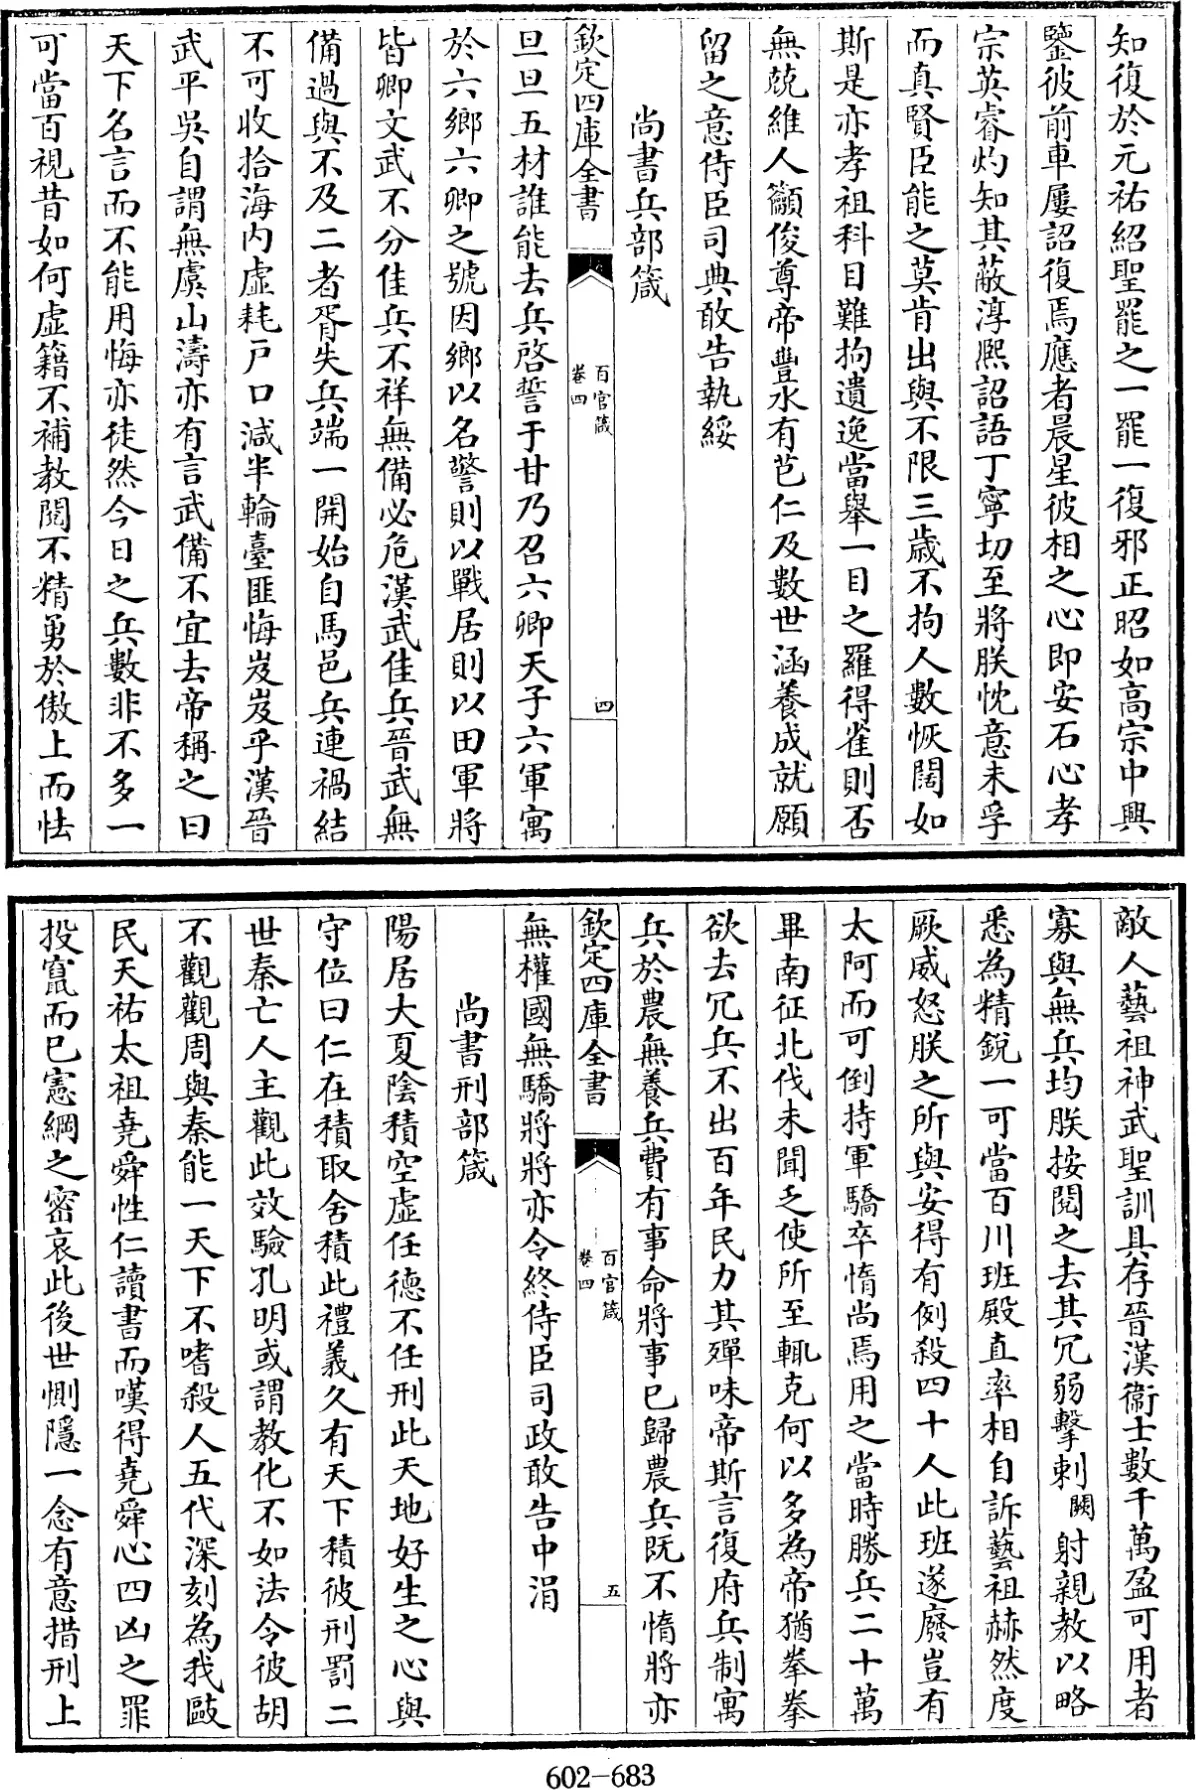 知復於元祐紹聖罷之一罷一復邪正昭如高宗中興
鑒彼前車屢詔復焉應者晨星彼相之心即安石心孝
宗英睿灼知其蔽淳熙詔語丁寧切至將朕忱意未孚
而真賢臣能之莫肯出與不限三歲不拘人數恢闊如
斯是亦孝祖科目難拘遺逸當舉一目之羅得雀則否
無兢維人籲俊尊帝豐水有芑仁及數世涵養成就願
留之意侍臣司典敢告執綏
尚書兵部箴
欽定四庫全書
百官箴
卷四
四
旦旦五材誰能去兵啓誓于甘乃召六卿天子六軍寓
於六鄉六卿之號因鄉以名警則以戰居則以田軍將
皆卿文武不分佳兵不祥無備必危漢武佳兵晉武無
備過與不及二者胥失兵端一開始自馬邑兵連禍結
不可收拾海内虛耗戶口減半輪臺匪悔岌岌乎漢晉
武平吳自謂無虞山濤亦有言武備不宜去帝稱之曰
天下名言而不能用悔亦徒然今日之兵數非不多一
可當百視昔如何虛籍不補教閱不精勇於傲上而怯
敵人藝祖神武聖訓具存晉漢衞士數千萬盈可用者
寡與無兵均朕按閱之去其冗弱擊刺闕射親教以略
悉為精銳一可當百川班殿直率相自訴藝祖赫然度
厥威怒朕之所與安得有例殺四十人此班遂廢豈有
太阿而可倒持軍驕卒惰尚焉用之當時勝兵二十萬
畢南征北伐未聞乏使所至輒克何以多為帝猶拳拳
欲去冗兵不出百年民力其殫味帝斯言復府兵制寓
兵於農無養兵費有事命將事已歸農兵既不惰將亦
欽定四庫全書
百官箴
卷四
五
無權國無驕將將亦令終侍臣司政敢告中涓
尚書刑部箴
陽居大夏陰積空虛任德不任刑此天地好生之心與
守位曰仁在積取舍積此禮義久有天下積彼刑罰二
世秦亡人主觀此效驗孔明或謂教化不如法令彼胡
不觀觀周與秦能一天下不嗜殺人五代深刻為我敺
民天祐太祖堯舜性仁讀書而嘆得堯舜心四凶之罪
投竄而已憲綱之密哀此後世惻隱一念有意措刑上
602-683